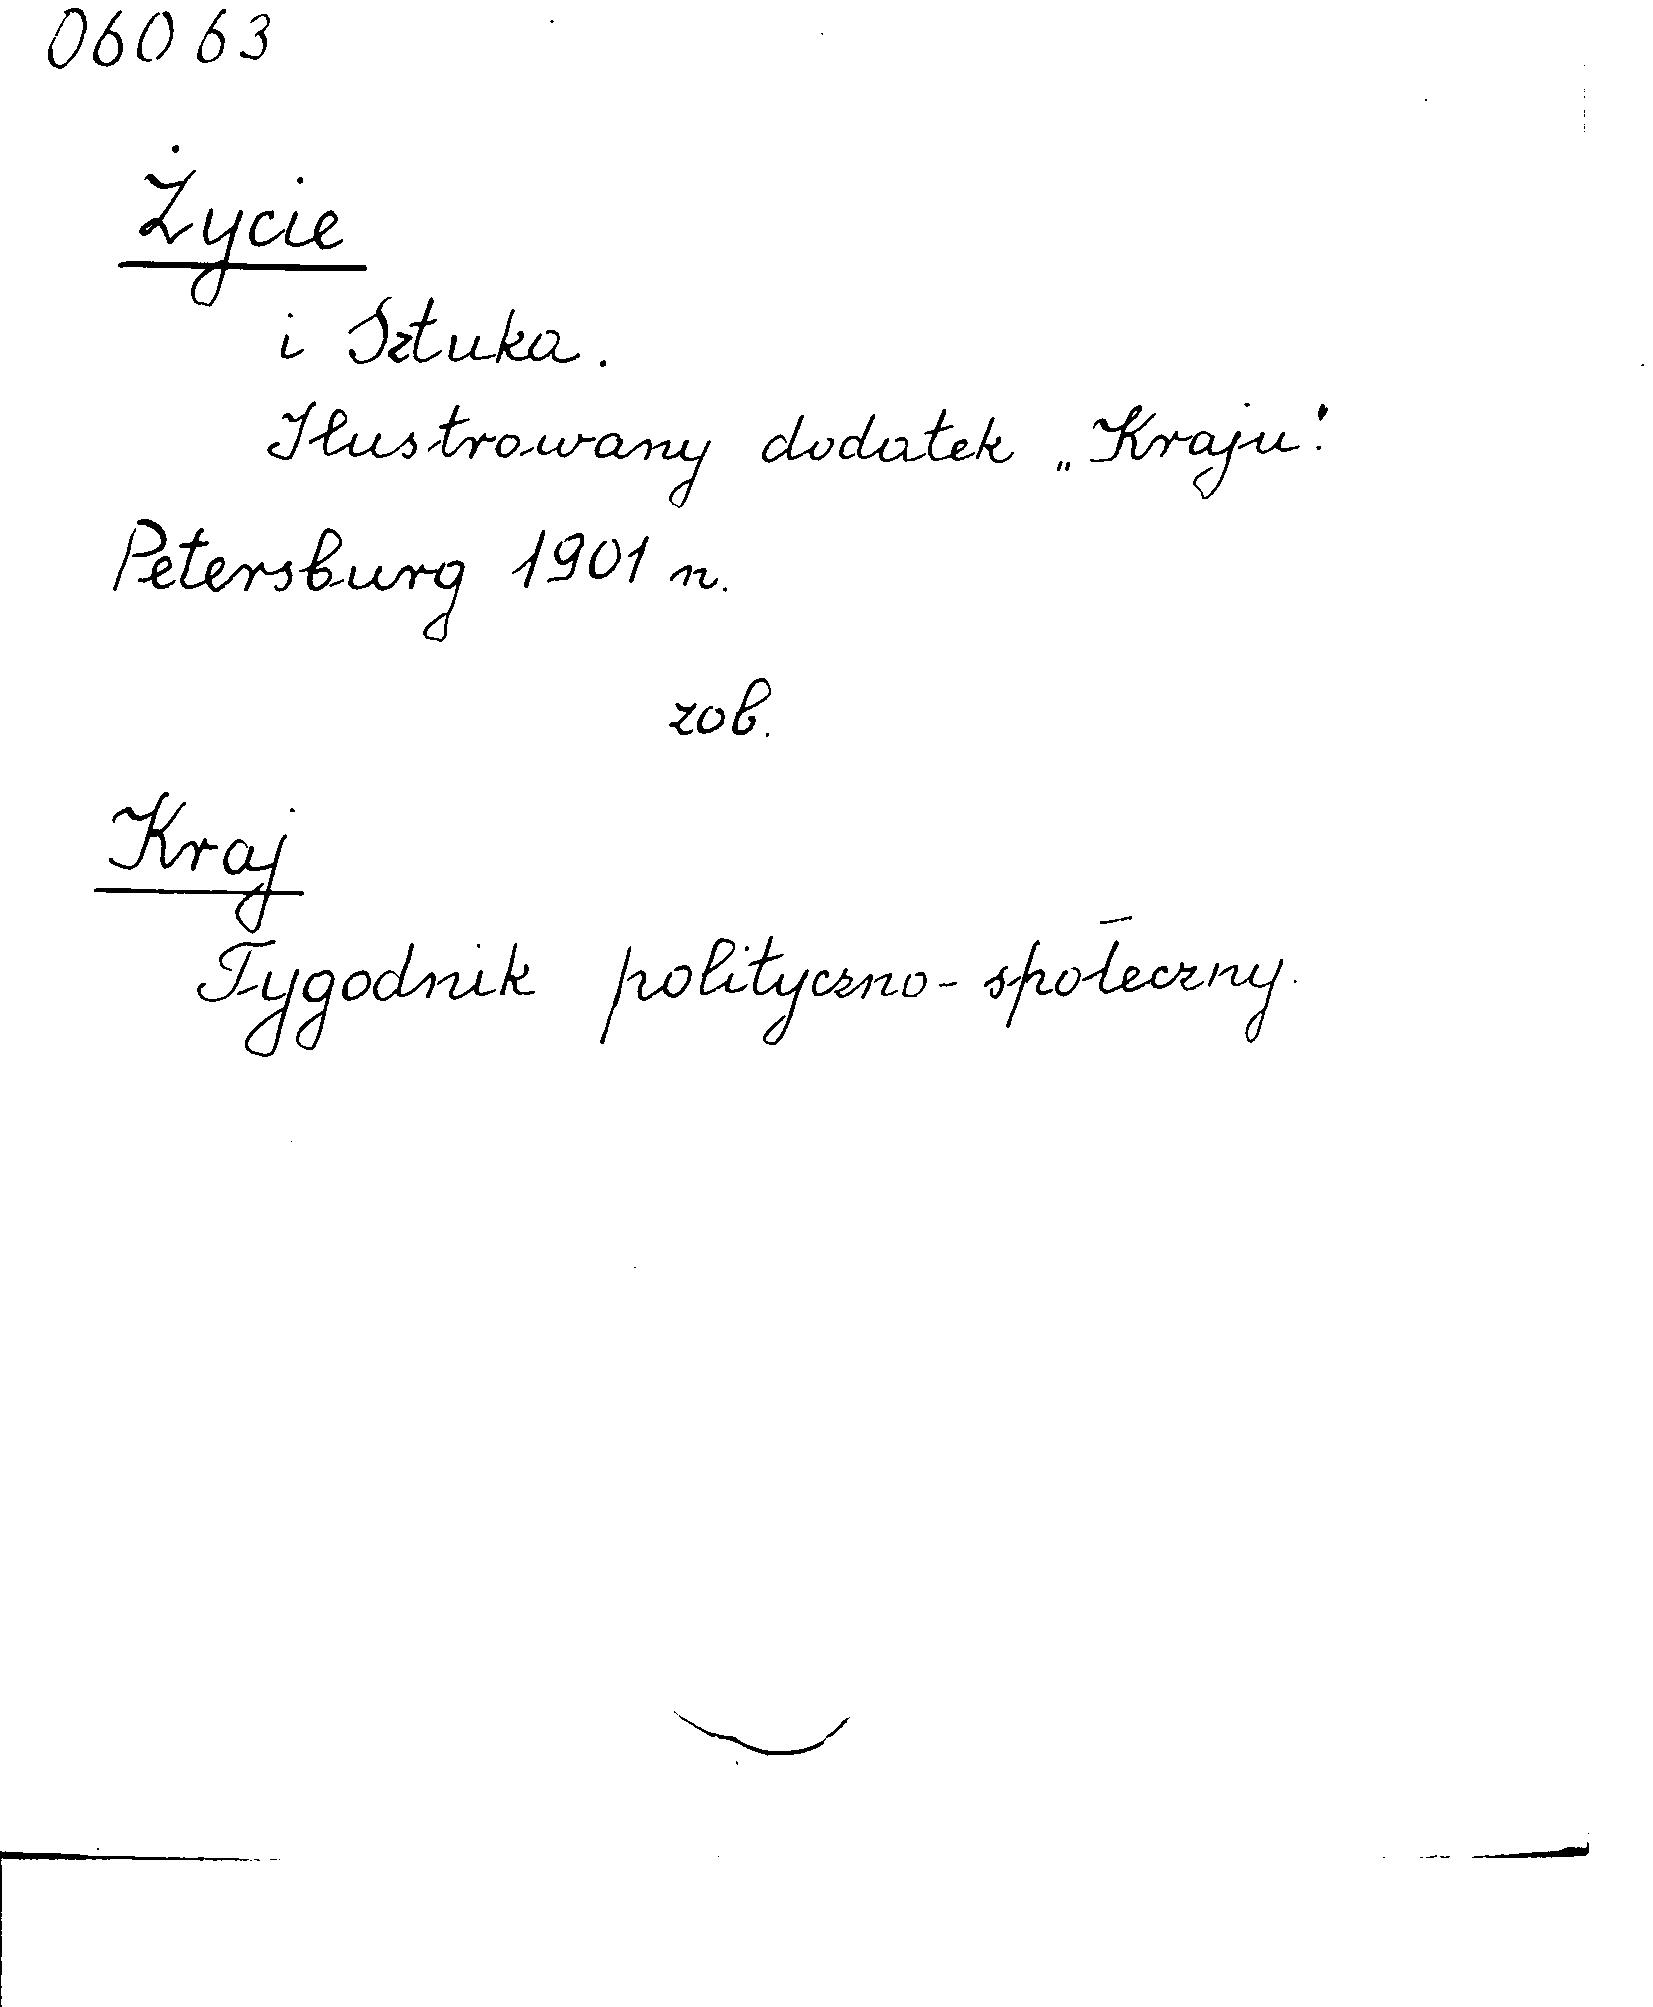 06063
Życie
i Sztuka.
Ilustrowany dodatek „Kraju".
Petersburg 1901 r.
zob.
Kraj
Tygodnik polityczno-społeczny.